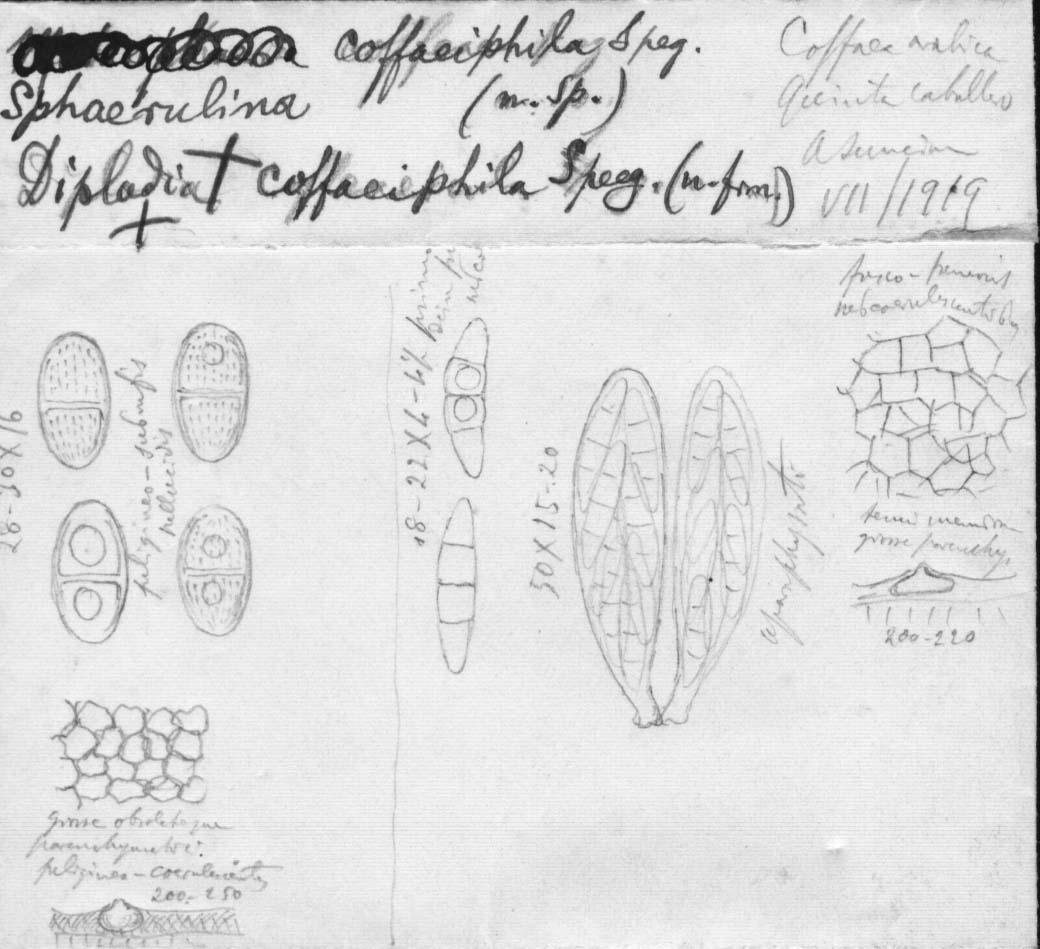 coffaeiphila Speg.
Sphaerulina (n. sp.)
Diplodia coffaeiphila Speg. (n. frm.)
Coffaea arabica
Quinta caballero
Asuncion
VII/1919
28-30X16
fuligineo-subrufis
pellucidis
18-22X4-4½ primo
dein
50X15-20
aparaphysato
fusco-
tenui membran
grosse parenchy.
200-220
grosse obsoleteque
parenchymatic.
fuligineo-coerulescente
200-250